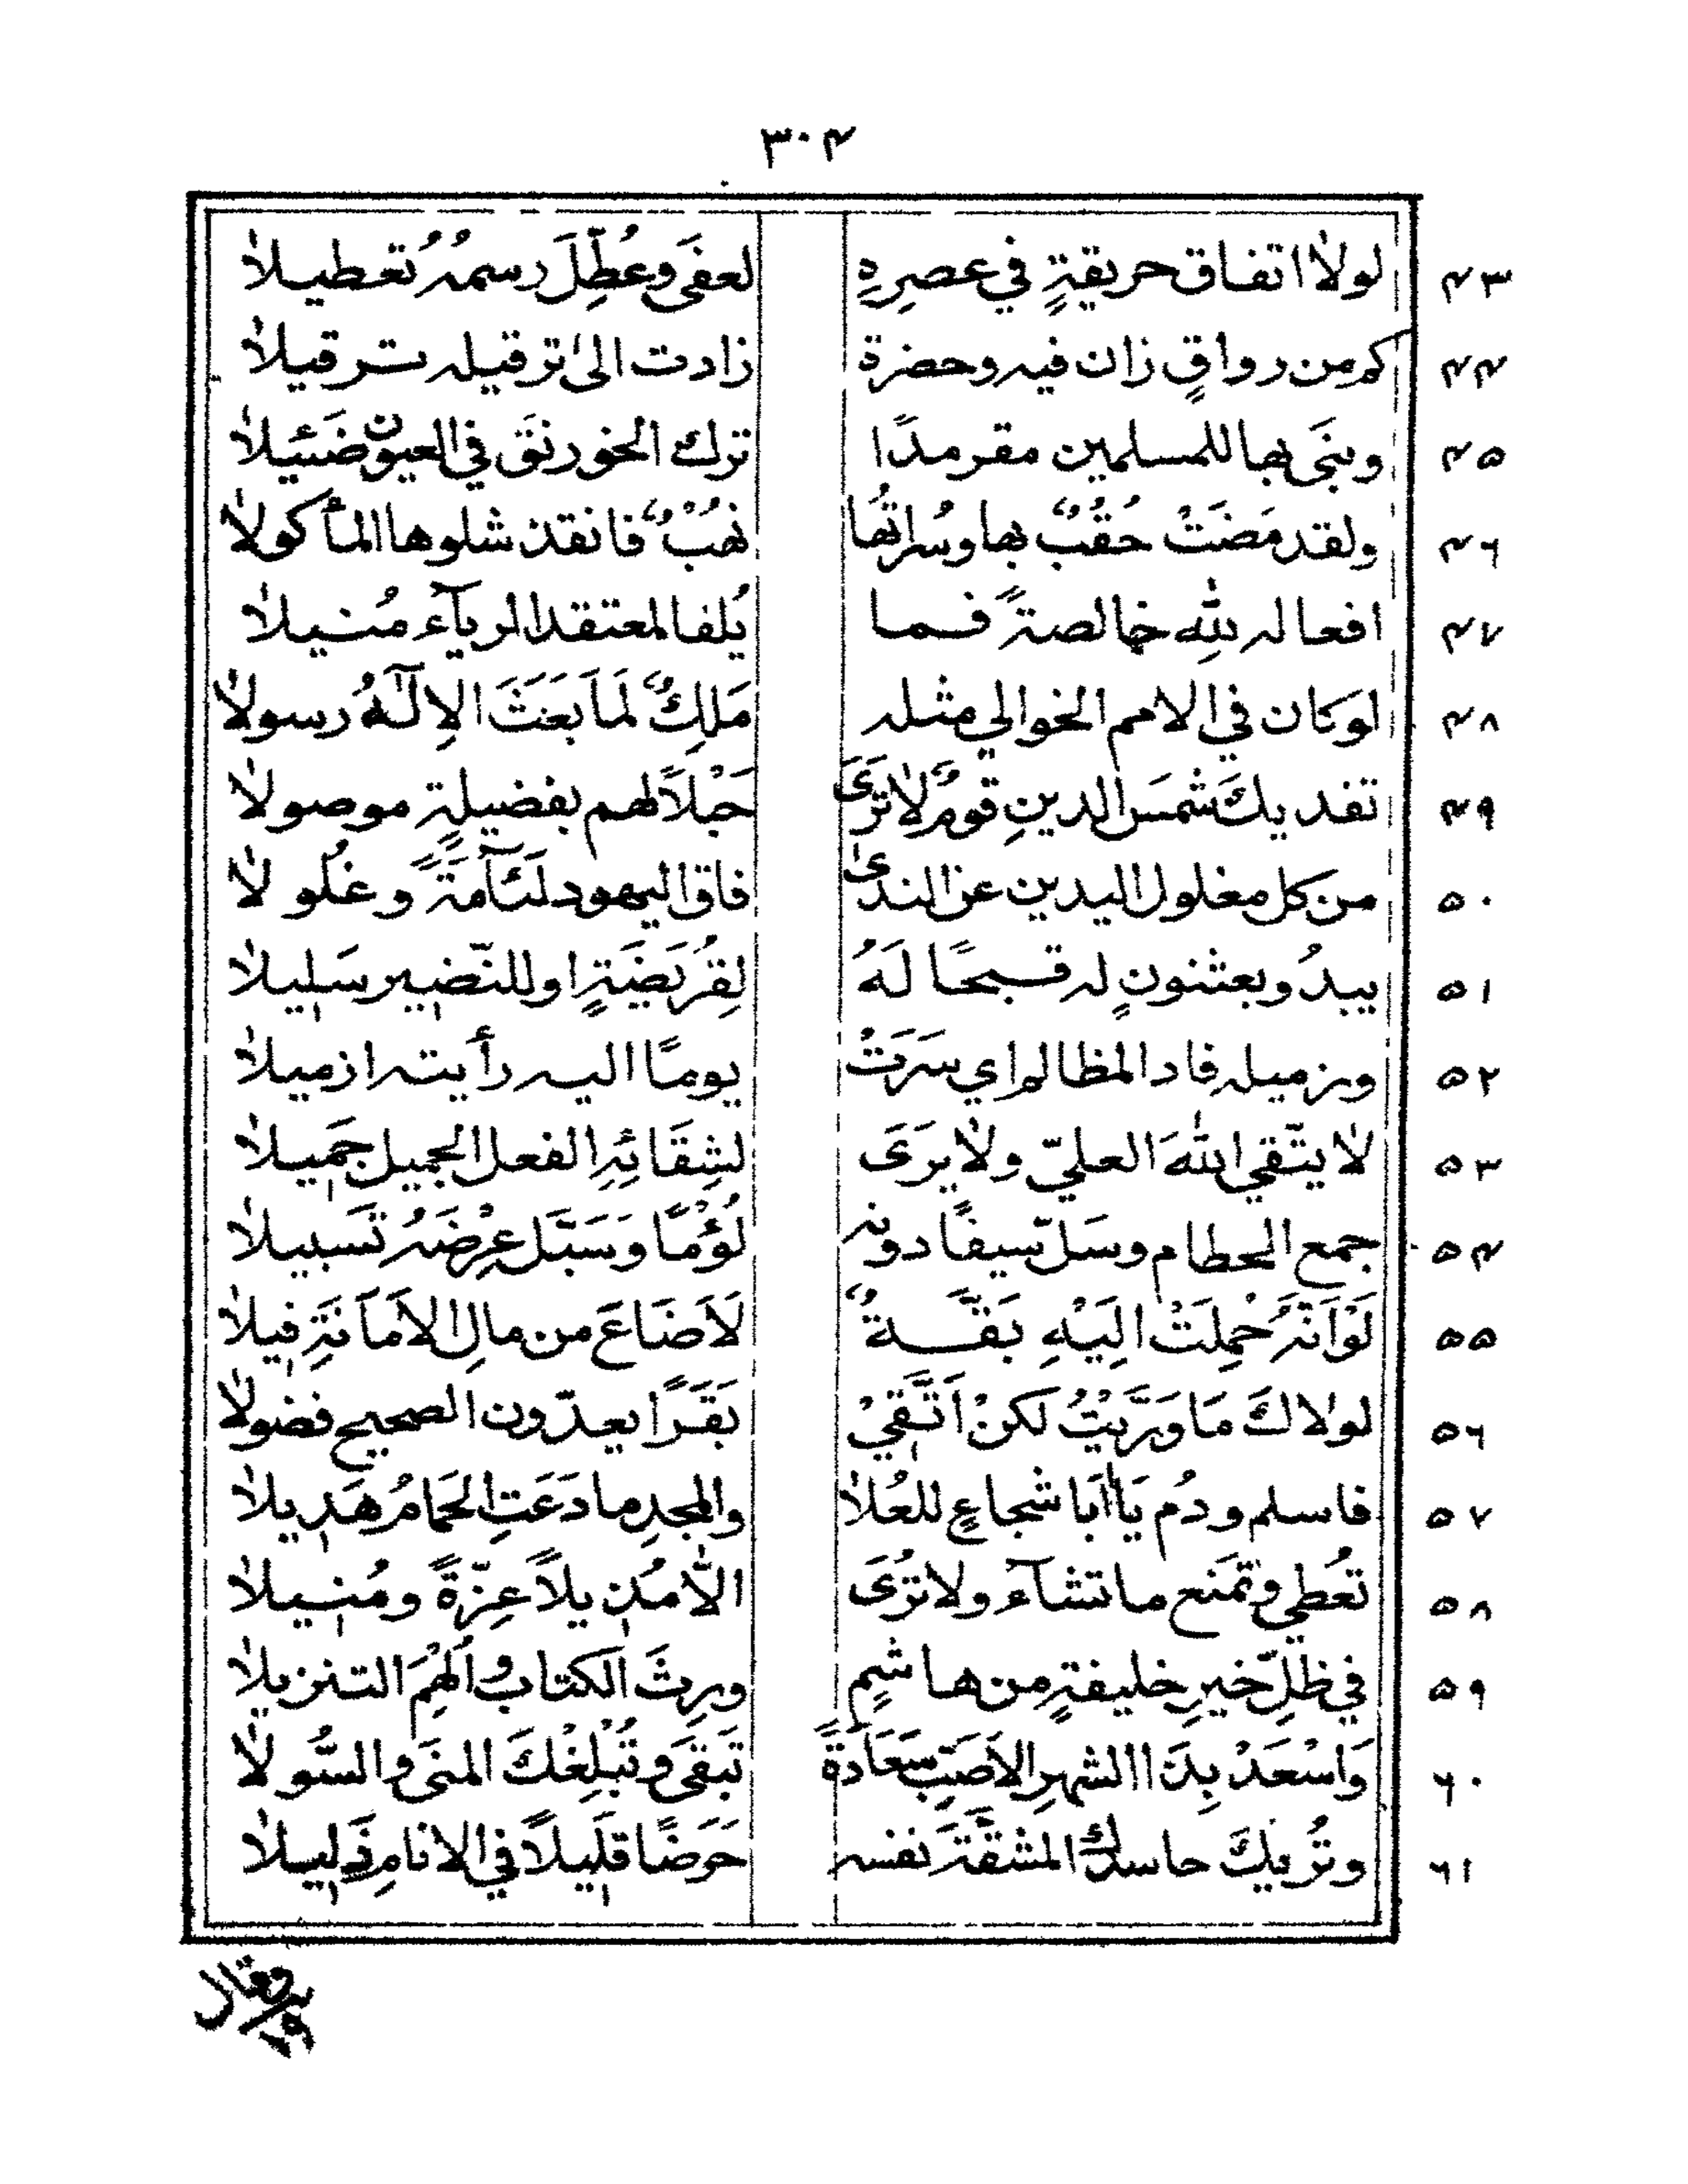 ٣٠٤
٤٣ لولا اتفاق حريقةٍ في عصرِهِ لعفَى وعُطِّلَ رسمهُ تُعطيلا
٤٤ كم من رواقٍ زان فيه وحضرة زادت الى ترقيله ترقيلا
٤٥ وبنَى بها للمسلمين مقرمدًا ترك الخورنقَ في العيون ضَئيلا
٤٦ ولقد مَضَتْ حُقُبٌ بها وسُراتُها نُهْبٌ فانقذ شلوها المأكولا
٤٧ افعاله للهِ خالصةً فما يُلفا لمعتقد الريآء مُنيلا
٤٨ لو كان في الامم الخوالي مثله مَلِكٌ لَمَا بَعَثَ الاِلٓهُ رسولا
٤٩ تفديك شمسَ الدينِ قومٌ لا تَرَى حَبْلاً لهم بفضيلةٍ موصولا
٥٠ من كل مغلول اليدين عن الندى فاق اليهود لَئآمَةً وغُلولا
٥١ يبدُو بعثنونٍ له قبحًا لَهُ لِقُرَيضَةٍ او للنّضير سَليلا
٥٢ وبزميله فاد المظالم اي سَرَتْ يومًا اليه رأيته ازميلا
٥٣ لا يتّقي اللهَ العليّ ولا يرَى لشِقَائِهِ الفعل الجميل جَميلا
٥٤ جمع الحطام وسَلّ سيفًا دونه لُؤْمًا وَسَبَّل عِرْضَهُ تَسبيلا
٥٥ لَوْ اَنَّهُ حُمِلَتْ اِلَيْهِ بَقَّةٌ لَاَضَاعَ من مالِ الاَمَانَةِ فيلا
٥٦ لولاك مَا وَرَّيْتُ لكنْ اَتَّقِيْ بَقَرًا يعدّون الصحيح فضولا
٥٧ فاسلم ودُم يَا اَبا شجاعٍ للعُلا والمجدِ ما دَعَتِ الحَمامُ هَديلا
٥٨ تُعطي وتمنَع ما تشآء ولا تُرَى الّا مُذيلاً عِزّةً ومُنيلا
٥٩ في ظلِّ خيرِ خليفةٍ من هاشمٍ ورِثَ الكتاب واُلهِمَ التنزيلا
٦٠ وَاسْعَدْ بِذَا الشهرِ الاَصَبِّ سَعَادَةً تَبقَى وتُبْلِغْكَ المنَى والسُّولا
٦١ وتُريكَ حاسدك المشقَّةَ نفسه حَرَضًا قليلاً في الانامِ ذَليلا
وقال